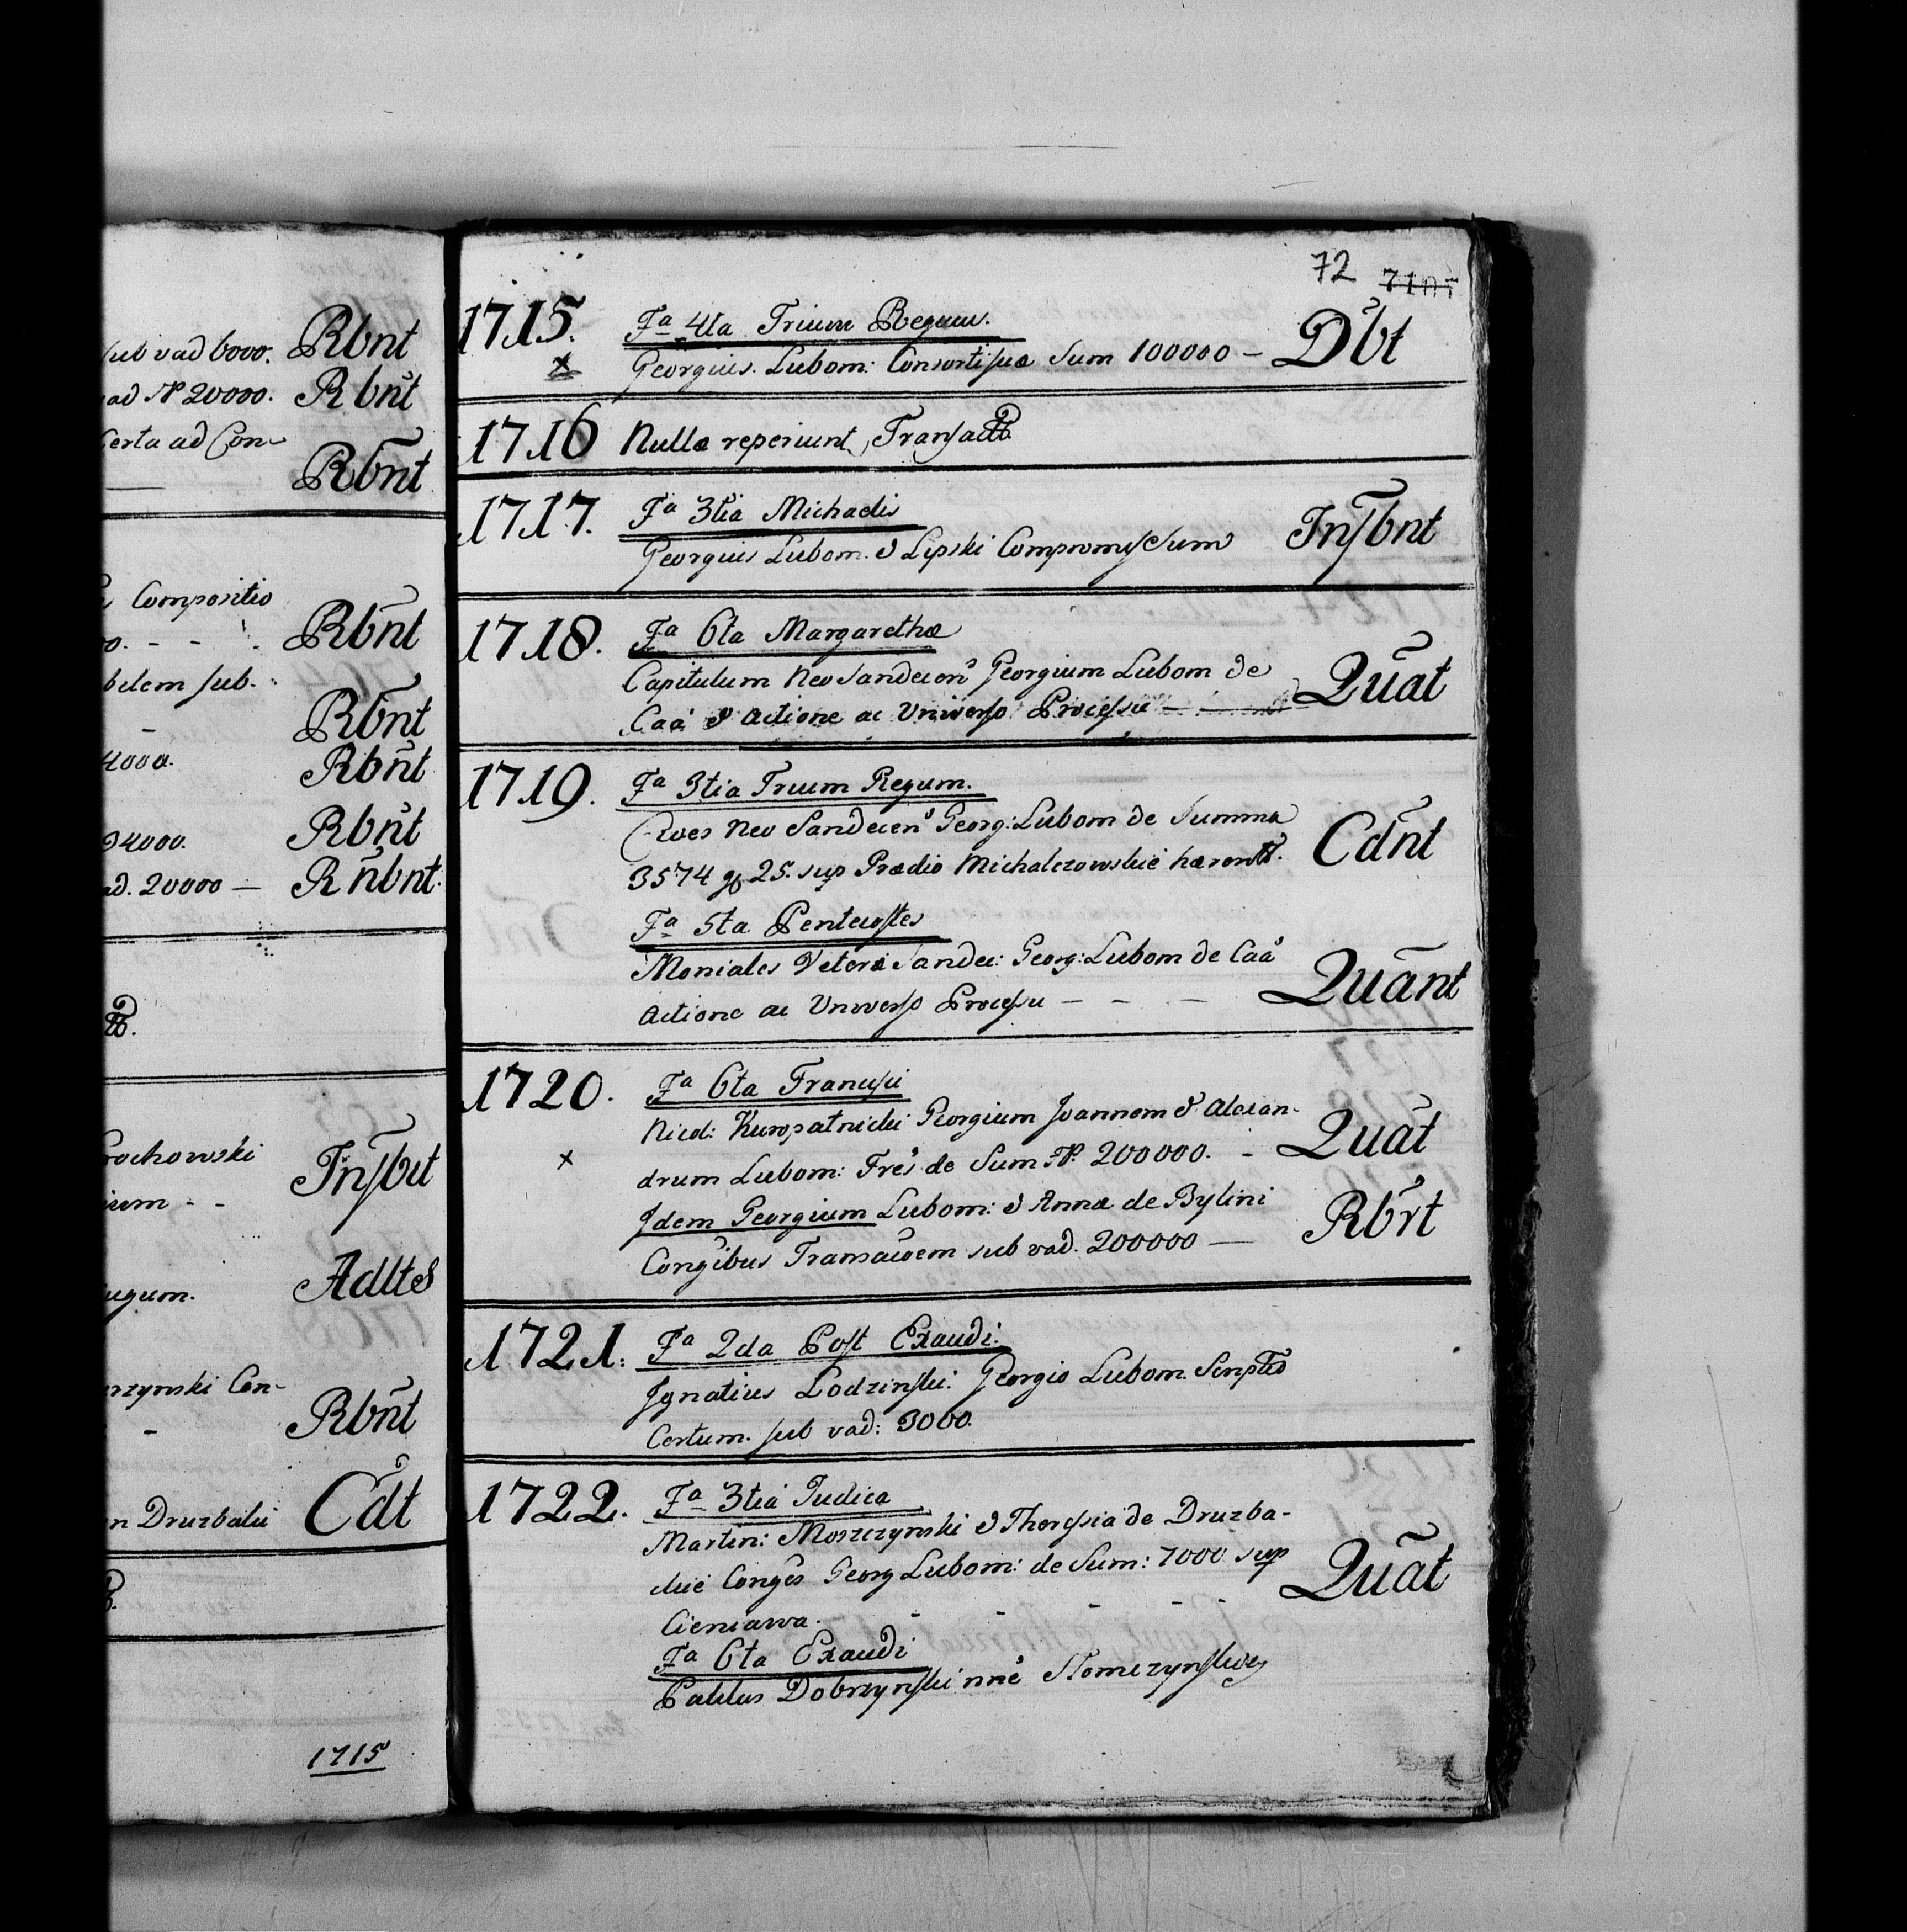 sub vad 6000. Rbnt
ad 20000. Rbnt
Certa ad Con-
Rbnt
Compositio
Rbnt
belem sub.
Rbnt
4000. Rbnt
94000. Rbnt
ad. 20000 — Rñbnt.
rochowski
Insbt
ium - -
Adltes
ugum.
rzynski Con-
Rbnt
n Druzbalii Cdt
1715
72 7107
1715. Fa 4ta Trium Regum.
Georgius. Lubom: Consorti suæ Sum 100000 — Dbt
1716 Nullæ reperiunt, Transact
1717. Fa 3tia Michaelis
Georgius Lubom. & Lipski Compromissum Insbnt
1718. Fa 6ta Margarethæ
Capitulum Neo Sandecen Georgium Lubom de
Caa & actione ac Universo Processu — Quat
1719. Fa 3tia Trium Regum.
Neo Sandecen Georg: Lubom de Summa
3574 25. sup Prædio Michalczowskie hærent. Cdnt
Fa 5ta Pentecostes
Moniales Veteri Sandec: Georg: Lubom de Caa
actione ac Universo Processu — — — Quant
1720. Fa 6ta Francisci
Nicol: Kuropatnicki Georgium Joannem & Alexan-
drum Lubom: Fres de Sum 200000. - Quat
Idem Georgium Lubom: & Anna de Bylini
Congibus Transacoem sub vad. 200000 — Rbrt
1721. Fa 2da Post Exaudi.
Ignatius Lodzinski. Georgio Lubom. Scriptio
Certum. sub vad: 3000.
1722. Fa 3tia Judica
Martin: Moszczynski & Theresia de Druzba-
ckie Conges Georg Lubom: de Sum: 7000 sup
Cieniawa. - - - - Quat
Fa 6ta Exaudi
Dobrzynski nne